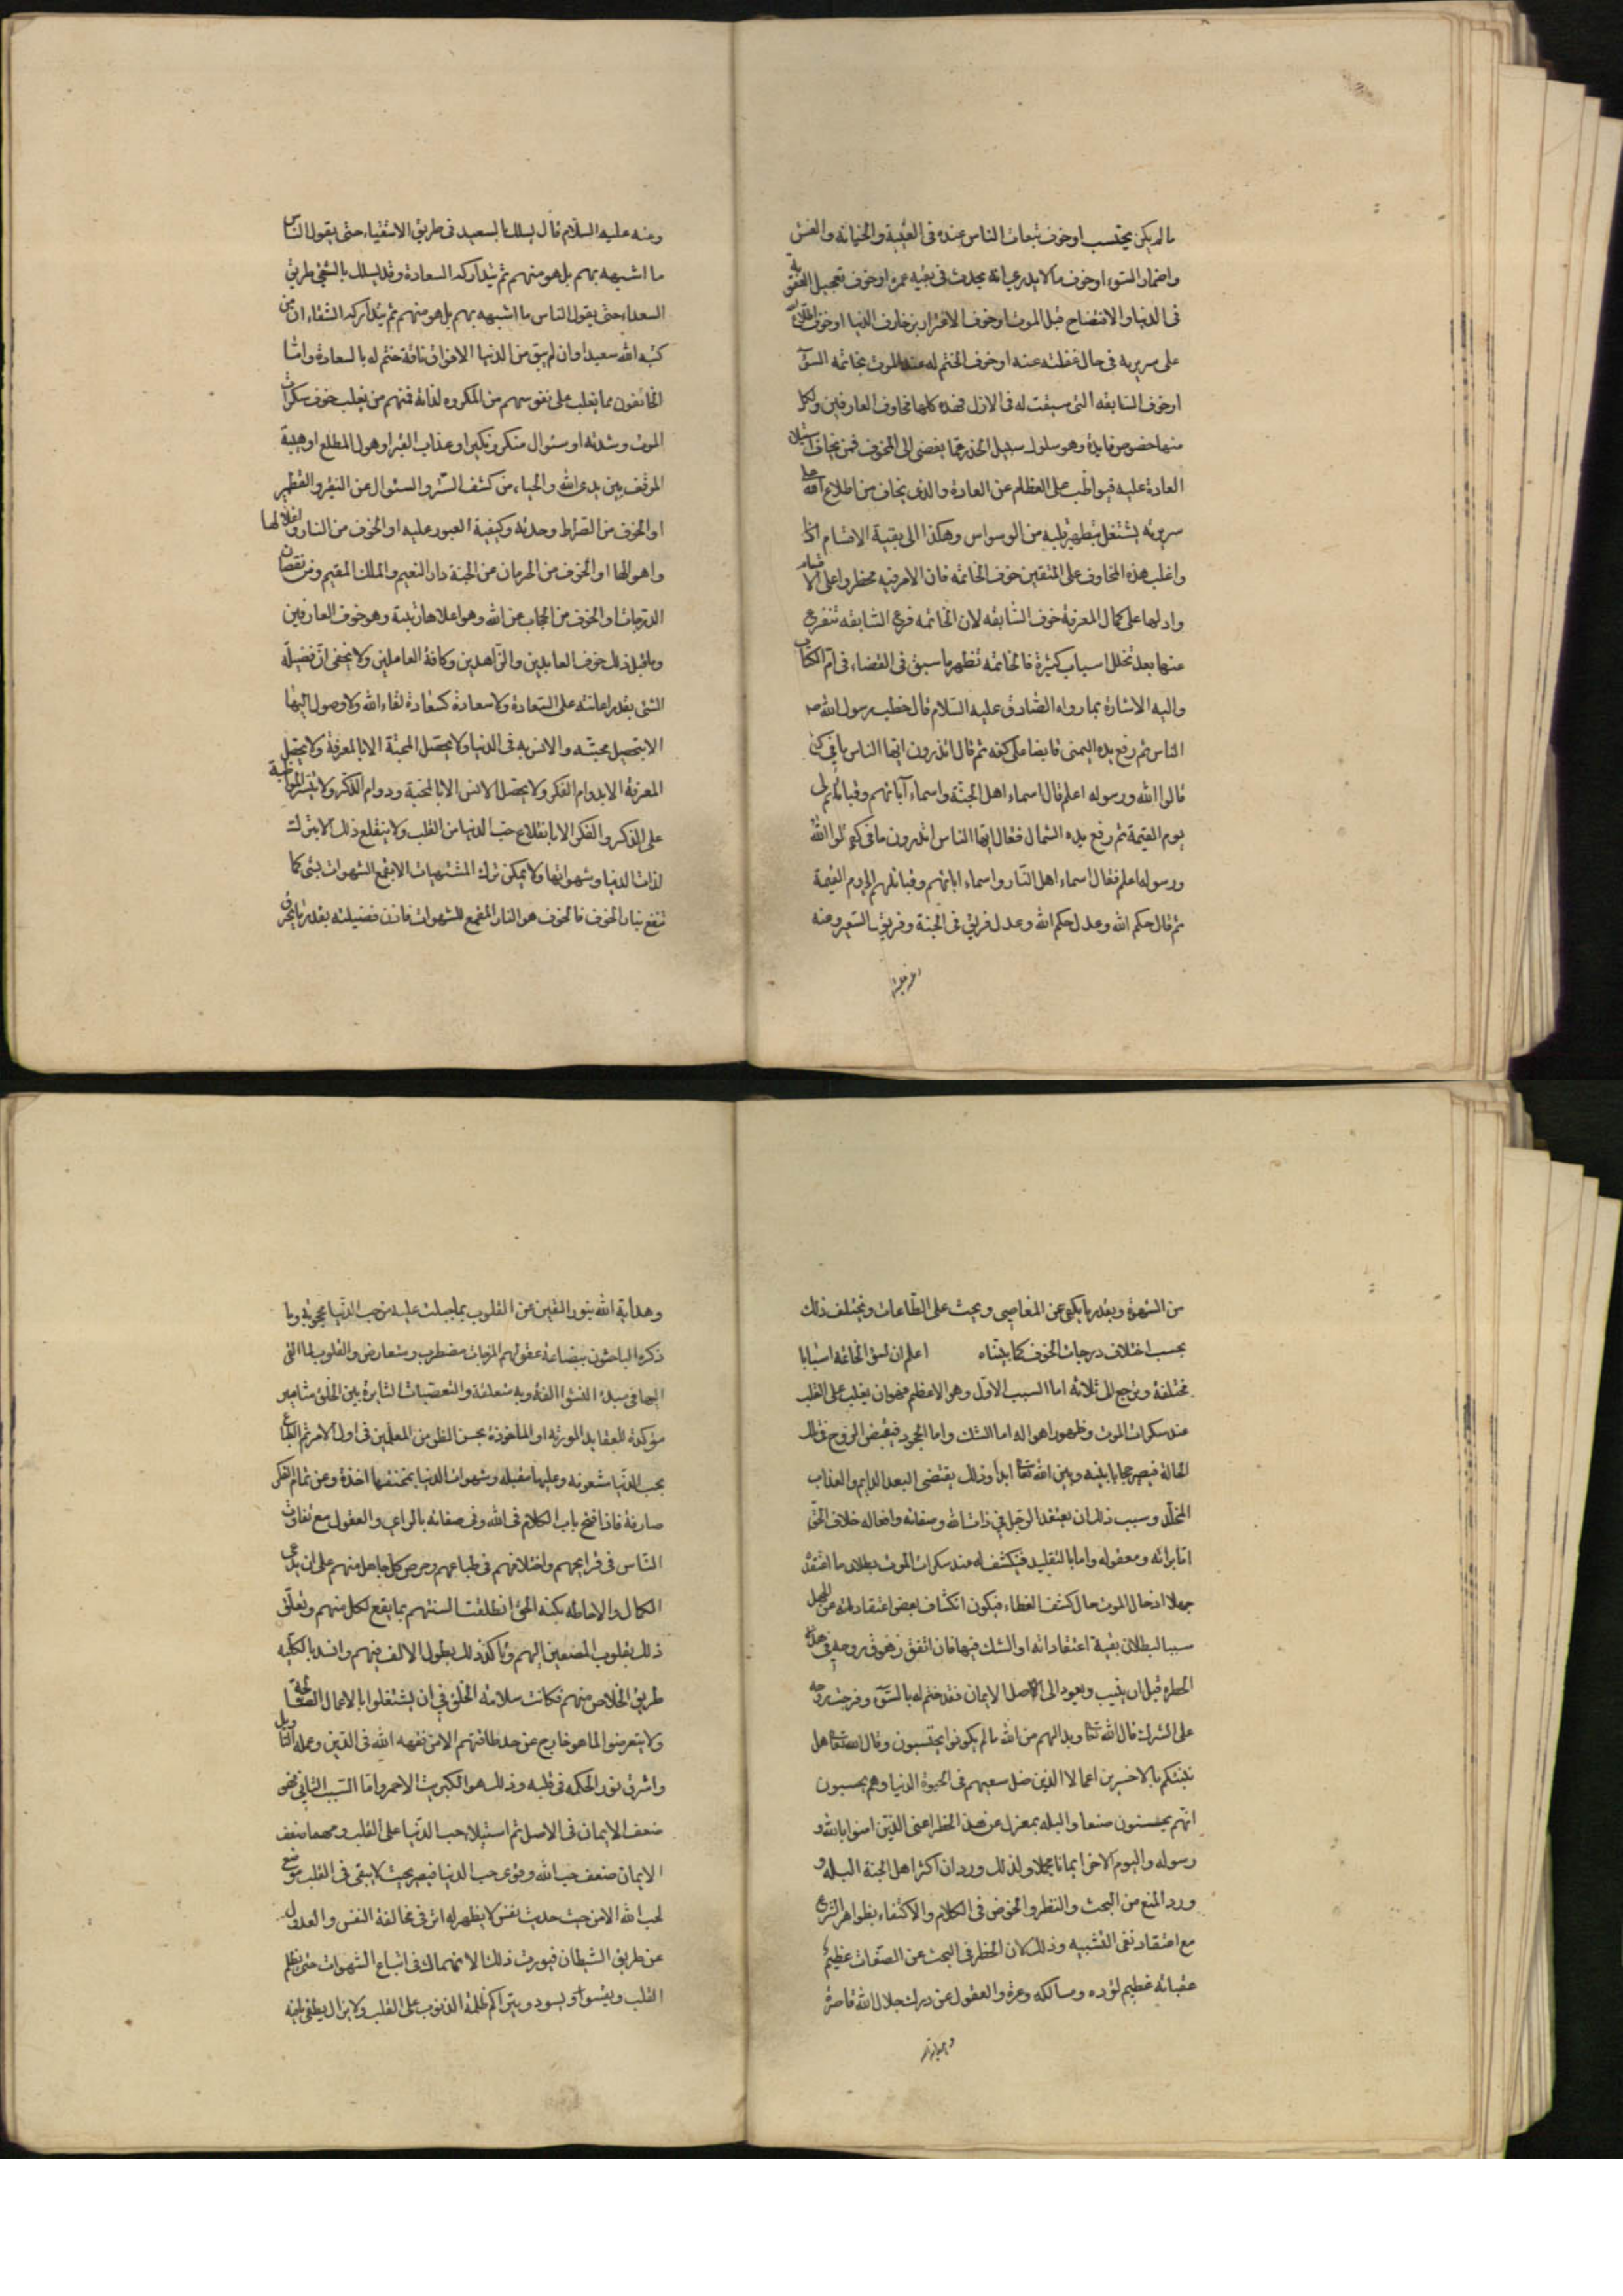 مالم يكن يحتسب او خوف تبعات الناس عنده فى الغيبة والخيانة والغش
واضمار السوء او خوف ما لا يدرى انه يحدث فى بقيه عمره او خوف تعجيل العقوبة
فى الدنيا والافتضاح قبل الموت او خوف الاغترار بزخارف الدنيا او خوف اطلاع الله
على سريرته فى حال غفلته عنه او خوف الختم له عند الموت بخاتمه السوٓ
او خوف السابقه التى سبقت له فى الازل فهذه كلها مخاوف العارفين ولكل
منها خصوص فايدة وهو سلوك سبيل الحذر عما يفضى الى المخوف فمن يخاف استيلاء
العادة عليه فيواظب على الفطام عن العادة والذى يخاف من اطلاع الله على
سريرته يشتغل بتطهير قلبه من الوسواس وهكذا الى بقية الاقسام
واغلب هذه المخاوف على المتقين خوف الخاتمه فان الامر فيه مخطر واعلى الاقسام
وادلها على كمال المعرفة خوف السّابقه لان الخاتمه فرع السّابقه تتفرع
منها بعد تخلل اسباب كثيرة فالخاتمه تظهر ما سبق فى القضاء فى ام الكتاب
واليه الاشارة بما رواه الصّادق عليه السّلام قال خطب رسول الله ص
الناس ثم رفع يده اليمنى قابضا على كفه ثم قال اتدرون ايها الناس ما فى كفى
قالوا الله ورسوله اعلم قال اسماء اهل الجنّة واسماء آبائهم وقبائلهم الى
يوم القيمة ثم رفع يده الشمال فقال ايها الناس اتدرون ما فى كفى قالوا الله
ورسوله اعلم فقال اسماء اهل النّار واسماء ابائهم وقبائلهم الى يوم القيمة
ثم قال حكم الله وعدل حكم الله وعدل فريق فى الجنة وفريق فى السّعير وعنه
وعنه عليه السلام قال يسلك بالسعيد فى طريق الاشقياء حتى يقول الناس
ما اشبهه بهم بل هو منهم ثم يتداركه السعادة وقد يسلك بالشقى طريق
السعداء حتى يقول الناس ما اشبهه بهم بل هو منهم ثم يتداركه الشقاء ان من
كتبه الله سعيدا وان لم يبق من الدنيا الا فواق ناقة ختم له بالسعادة واما
الخائفون مما يغلب على نفوسهم من المكروه لغاية فمنهم من يغلب خوف سكرات
الموت وشدته او سئوال منكر ونكير او عذاب القبر او هول المطلع او هيبة
الموقف بين يدى الله والحياء من كشف السّتر والسئوال عن النقير والقطمير
او الخوف من الصّراط وحدته وكيفية العبور عليه او الخوف من النار واغلالها
واهوالها او الخوف من الحرمان من الجنة دار النعيم والملك المقيم ومن نقصان
الدرجات او الخوف من الحجاب عن الله وهو اعلاها رتبة وهو خوف العارفين
وما قبل ذلك خوف العابدين والزّاهدين وكافة العاملين ولا يخفى انّ فضيلة
الشئ بقدر اعانته على السّعادة ولا سعادة كسعادة لقاء الله ولا وصول اليها
الا بتحصيل محبّته والانس به فى الدنيا ولا يحصّل المحبّة الا بالمعرفة ولا يحصّل
المعرفة الا بدوام الفكر ولا يحصّل الانس الا بالمحبة ودوام الذكر ولا يتيسر المواظبة
على الذكر والفكر الا بانقلاع حبّ الدنيا من القلب ولا ينقلع ذلك الا بترك
لذات الدنيا وشهواتها ولا يمكن ترك المشتهيات الا بقمع الشهوات بشئ كما
تنقمع بنار الخوف فالخوف هو النار المقمع للشهوات فاذن فضيلته بقدر ما يحرق
من الشهوة وبقدر ما يكف عن المعاصى ويحث على الطّاعات ويختلف ذلك
بحسب اختلاف درجات الخوف كما بيّناه اعلم ان لسوٓ الخاتمة اسبابا
مختلفة وترجع الى ثلاثه اما السبب الاوّل وهو الاعظم فهو ان يغلب على القلب
عند سكرات الموت وظهور اهواله اما الشك واما الجحود فيقبض الروح فى تلك
الحالة فيصير حجابا بينه وبين الله تعا ابدا وذلك يقتضى البعد الدايم والعذاب
المخلّد وسبب ذلك ان يعتقد الرّجل فى ذات الله وصفاته وافعاله خلاف الحقّ
امّا برائه ومعقوله واما بالتقليد فينكشف له عند سكرات الموت بطلان ما اعتقده
جهلا اذ حال الموت حال كشف الغطاء فيكون انكشاف بعض اعتقاداته عن الجهل
سببا لبطلان بقية اعتقاداته او الشك فيها فان اتفق زهوق روحه فى هذه
الخطرة قبل ان يثيب ويعود الى اصل الايمان فقد ختم له بالسّوٓ وخرجت روحه
على الشرك قال الله تعا وبدا لهم من الله ما لم يكونوا يحتسبون وقال الله تعا هل
ننبئكم بالاخسرين اعمالا الذين ضل سعيهم فى الحيوة الدنيا وهم يحسبون
انّهم يحسنون صنعا والبله بمعزل عن هذا الخطر اعنى الذين امنوا بالله و
رسوله واليوم الاخر ايمانا مجملا ولذلك ورد ان اكثر اهل الجنة البله و
ورد المنع من البحث والنظر والخوض فى الكلام والاكتفاء بظواهر الشرع
مع اعتقاد نفى التشبيه وذلك لان الخطر فى البحث عن الصّفات عظيم
عقباته عظيم لؤده ومسالكه وعرة والعقول عن درك جلال الله قاصرة
وهداية الله بنور اليقين عن القلوب بما جبلت عليه من حب الدّنيا محجوبة وما
ذكره الباحثون ببضاعة عقولهم المزجات مضطرب ومتعارض والقلوب لما القى
اليها فى مبدء النشو الفة وبه متعلقة والتعصبات الثايرة بين الخلق مسامير
مؤكدة للعقايد المورثه او الماخوذة بحسن الظن من المعلّمين فى اول الامر ثم الطباع
بحب الدّنيا مشعوفه وعليها مقبله وشهوات الدنيا بمخنقها اخذة وعن تمام الفكر
صارفة فاذا فتح باب الكلام فى الله وفى صفاته بالراى والعقول مع تفاوت
النّاس فى قرايحهم واختلافهم فى طباعهم وحرص كل جاهل منهم على ان يدعى
الكمال والاحاطه بكنه الحق انطلقت السنتهم بما يقع لكل منهم وتعلّق
ذلك بقلوب المصغين اليهم وتاكد ذلك بطول الالف فيهم وانسد بالكلّيه
طريق الخلاص منهم فكانت سلامة الخلق فى ان يشتغلوا بالاعمال الصّالحة
ولا يتعرضوا لما هو خارج عن حد طاقتهم الا من فقهه الله فى الدّين وعلمه التاويل
واشرق نور الحكمه فى قلبه وذلك هو الكبريت الاحمر وامّا السّبب الثانى فهو
ضعف الايمان فى الاصل ثم استيلاء حب الدّنيا على القلب ومهما ضعف
الايمان ضعف حب الله وقوى حب الدنيا فيصير بحيث لا يبقى فى القلب موضع
لحب الله الا من حيث حديث نفس لا يظهر له اثر فى مخالفة النفس والعدول
عن طريق الشيطان فيورث ذلك الانهماك فى اتباع الشهوات حتى يظلم
القلب ويقسوا ويسود ويتراكم ظلمة الذنوب على القلب ولا يزال يطفى ما فيه